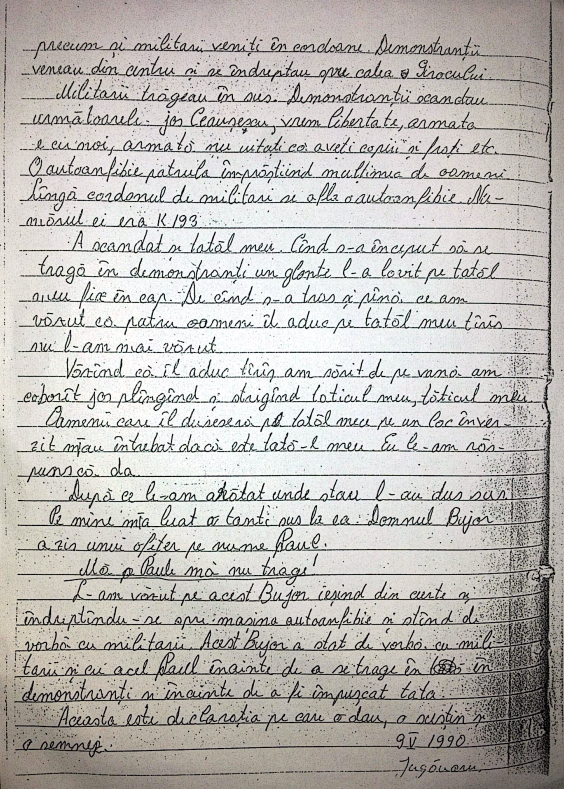 precum și militarii veniți în cordoane. Demonstranții
veneau din centru și se îndreptau spre calea Girocului
Militarii trăgeau în sus. Demonstranții scandau
următoarele: jos Ceaușescu, vrem libertate, armata
e cu noi, armata nu uitați că aveți copii și frați etc.
O autoanfibie patrula împrăștiind mulțimea de oameni
Lîngă cordonul de militari se afla o autoanfibie. Nu-
mărul ei era K193
A scandat și tatăl meu. Cînd s-a început să se
tragă în demonstranți un glonte l-a lovit pe tatăl
meu fix în cap. De cînd s-a tras și pînă ce am
văzut că patru oameni îl aduc pe tatăl meu tîrîș
nu l-am mai văzut
Văzînd că îl aduc tîrîș am sărit de pe vană am
coborît jos plîngînd și strigînd tăticul meu, tăticul meu.
Oamenii care îl duseseră pe tatăl meu pe un loc înver-
zit m-au întrebat dacă este tată-l meu. Eu le-am răs-
puns că da
După ce le-am arătat unde stau l-au dus sus
Pe mine m-a luat o tanti sus la ea. Domnul Bujor
a zis unui ofițer pe nume Paul.
Mă Paule mă nu trage!
L-am văzut pe acest Bujor ieșind din curte și
îndreptîndu-se spre mașina autoanfibie și stînd de
vorbă cu militarii. Acest Bujor a stat de vorbă cu mili-
tarii și cu acel Paul înainte de a se trage în în
demonstranți și înainte de a fi împușcat tata.
Aceasta este declarația pe care o dau, o susțin și
o semnez.
9 V 1990